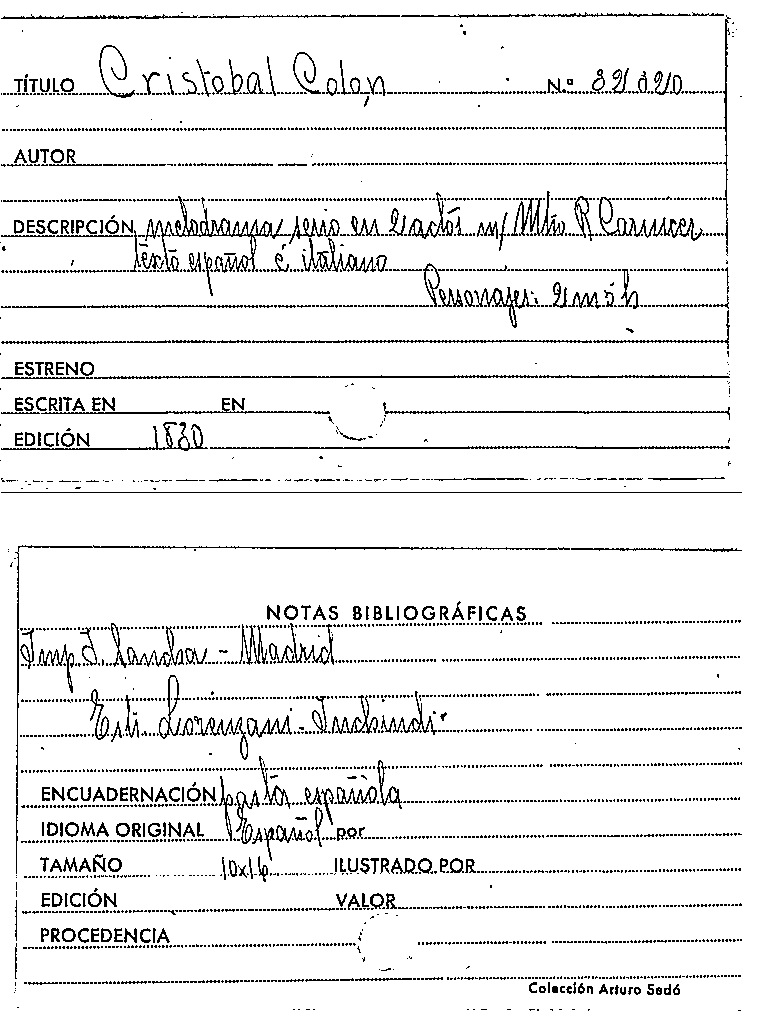 TÍTULO Cristobal Colon N.º 82/820
AUTOR
DESCRIPCIÓN melodrama serio en 2 actos m/ Mtro R Carnicer
texto español é italiano
Personajes: 2 m 5 h
ESTRENO
ESCRITA EN EN
EDICIÓN 1830
NOTAS BIBLIOGRÁFICAS
Imp. I. Sancha - Madrid
Lorenzani - Inchindi
ENCUADERNACIÓN pasta española
IDIOMA ORIGINAL Español por
TAMAÑO 10x16 ILUSTRADO POR
EDICIÓN VALOR
PROCEDENCIA
Colección Arturo Sedó